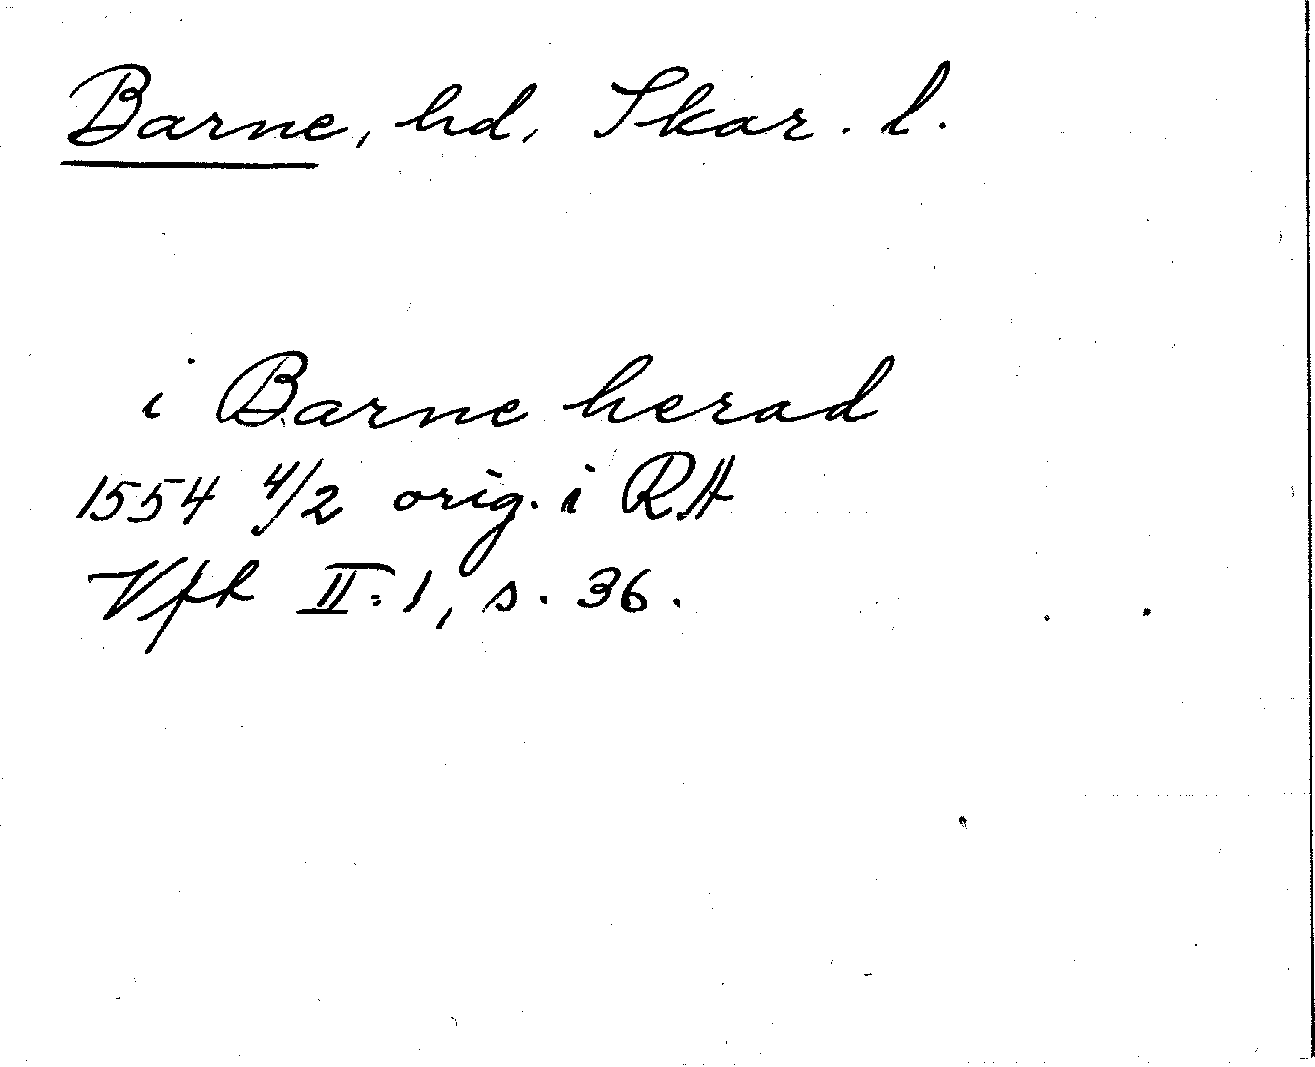 Barne, hd, Skar. l.
i Barne herad
1554 4/2 orig. i RA
Vfk II:1, s. 36.